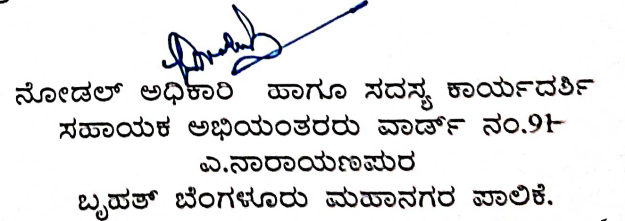 ನೋಡಲ್ ಅಧಿಕಾರಿ ಹಾಗೂ ಸದಸ್ಯ ಕಾರ್ಯದರ್ಶಿ
ಸಹಾಯಕ ಅಭಿಯಂತರರು ವಾರ್ಡ್ ನಂ.91
ಎ.ನಾರಾಯಣಪುರ
ಬೃಹತ್ ಬೆಂಗಳೂರು ಮಹಾನಗರ ಪಾಲಿಕೆ.